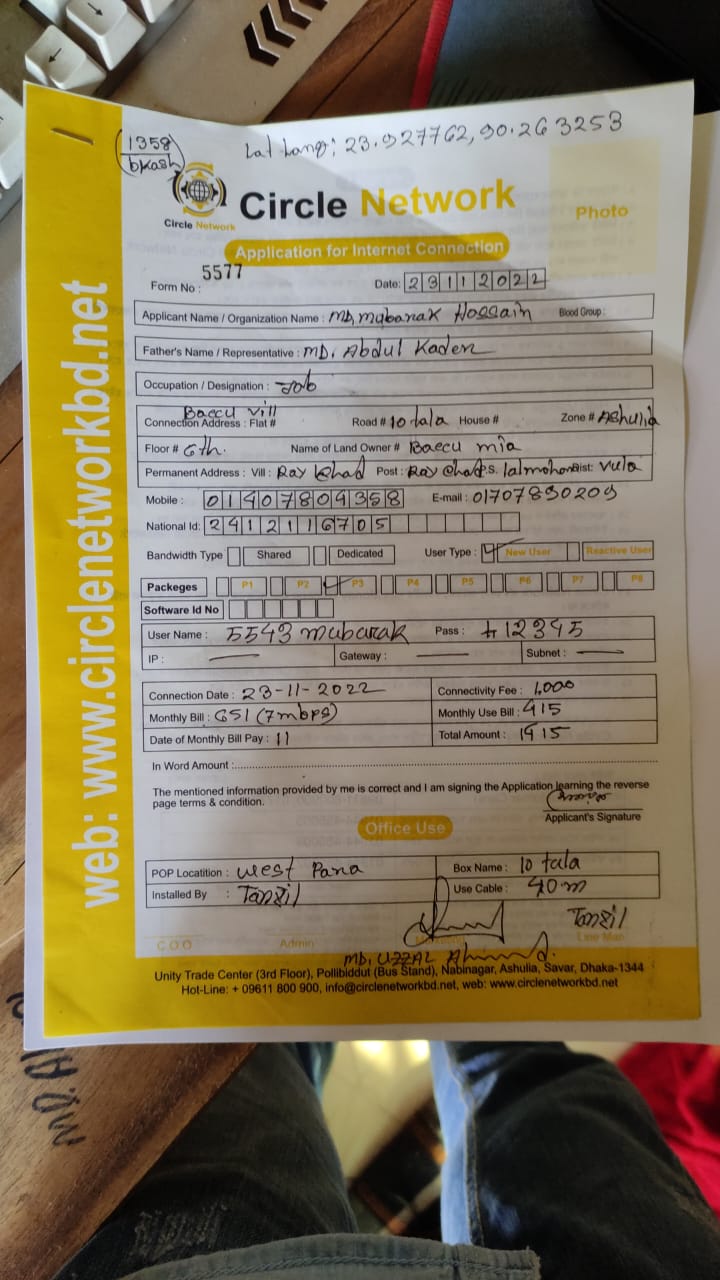 1358
bkash
Lat Lang: 23.927762, 90.263253
Circle Network
Circle Network
Photo
Application for Internet Connection
Form No : 5577
Date: 23112022
Applicant Name / Organization Name : MD, Mubarak Hossain Blood Group :
Father's Name / Representative : MD. Abdul Kader
Occupation / Designation : Job
Connection Address : Flat # Baccu Vill Road # 10 tala House # Zone # Ashulia
Floor # 6th. Name of Land Owner # Baccu mia
Permanent Address : Vill : Ray Chad Post : Ray Chad P.S. lalmohon Dist: Vula
Mobile : 01407804358 E-mail : 01707890209
National Id: 2412116705
Bandwidth Type Shared Dedicated User Type : New User Reactive User
Packeges P1 P2 P3 P4 P5 P6 P7 P8
Software Id No
User Name : 5543 mubarak Pass : #12345
IP : — Gateway : — Subnet : —
Connection Date : 23-11-2022 Connectivity Fee : 1,000
Monthly Bill : 651 (7mbps) Monthly Use Bill : 415
Date of Monthly Bill Pay : 11 Total Amount : 1415
In Word Amount :
The mentioned information provided by me is correct and I am signing the Application learning the reverse
page terms & condition.
Applicant's Signature
Office Use
POP Locatition : West Para Box Name : 10 tala
Installed By : Tanzil Use Cable : 40m
Tanzil
C.O.O Admin Line Man
MD. UZZAL Ahmed.
Unity Trade Center (3rd Floor), Pollibiddut (Bus Stand), Nabinagar, Ashulia, Savar, Dhaka-1344
Hot-Line: + 09611 800 900, info@circlenetworkbd.net, web: www.circlenetworkbd.net
web: www.circlenetworkbd.net